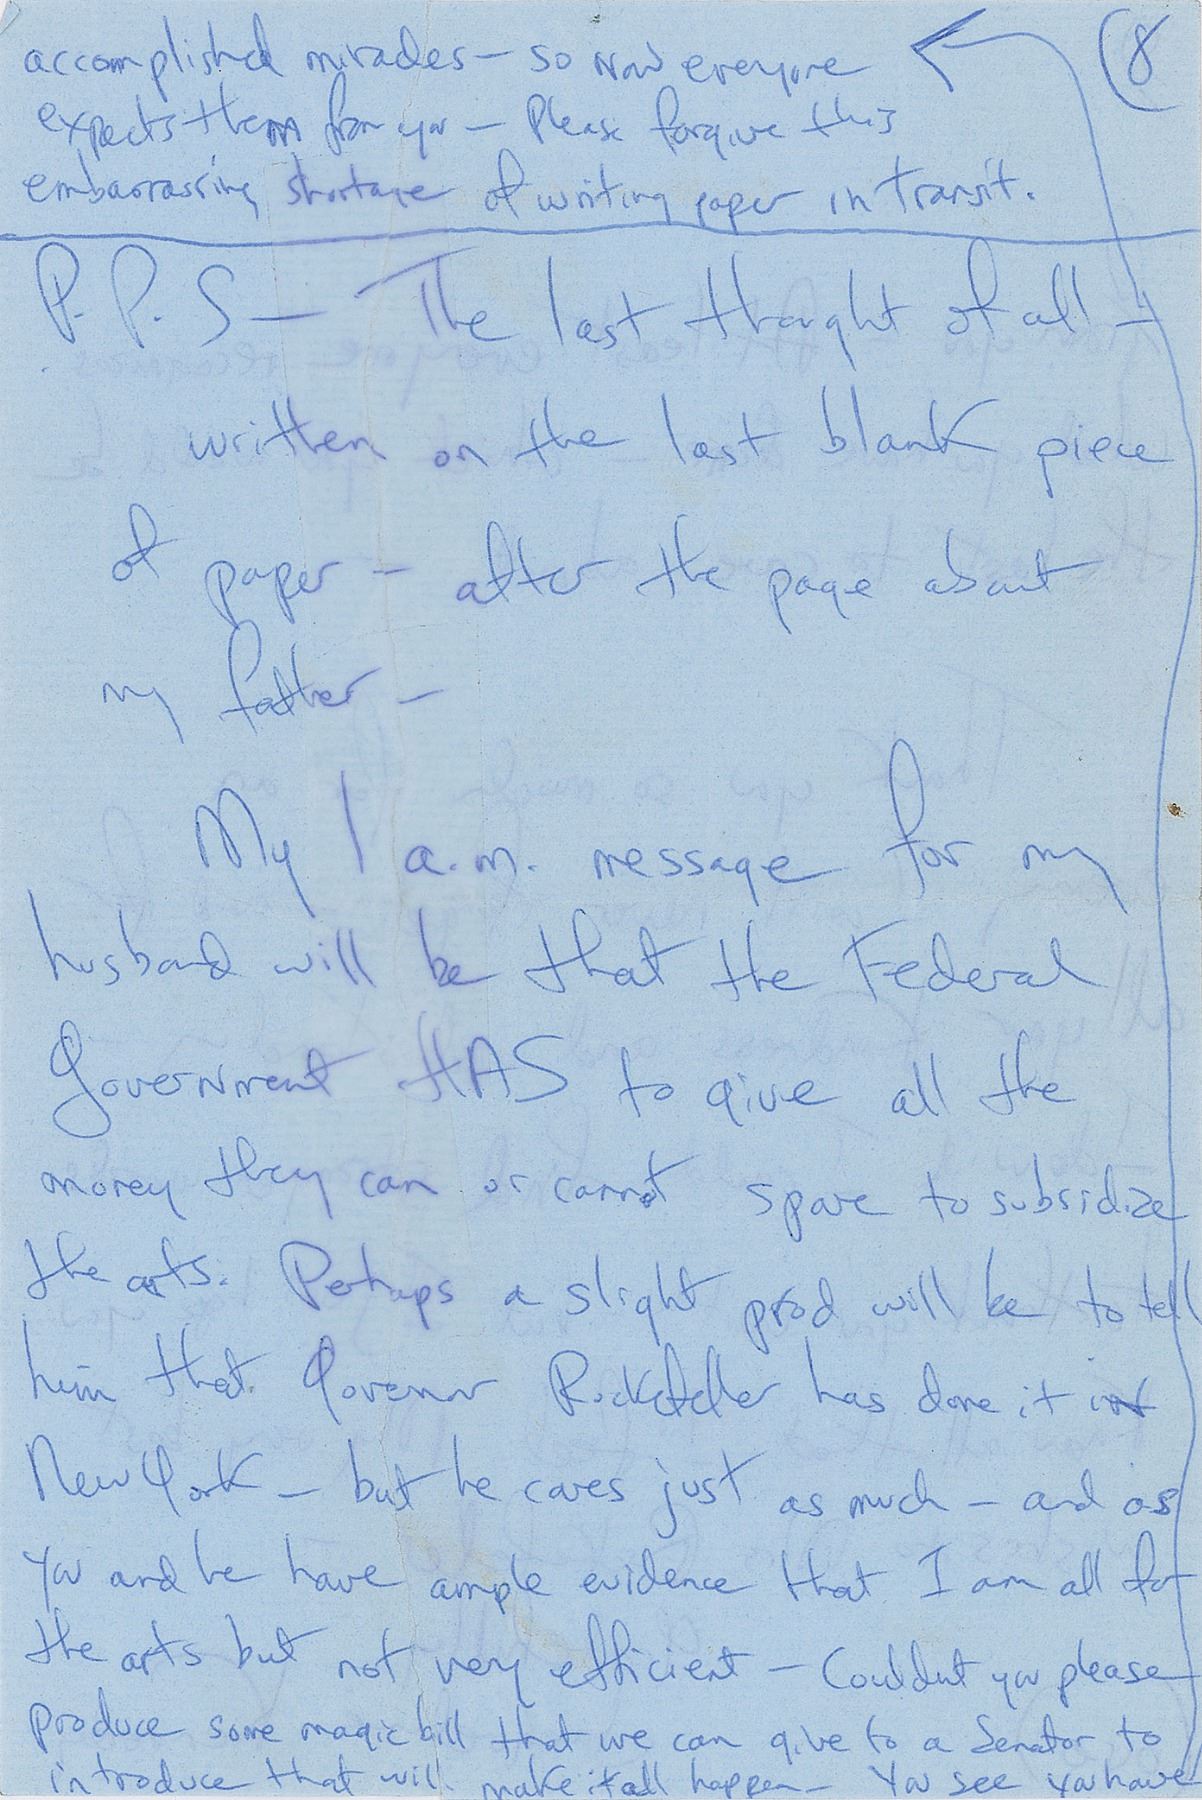 accomplished miracles — so now everyone
expects them from you — Please forgive this
embarrassing shortage of writing paper in transit.
(8
P.P.S — The last thought of all —
written on the last blank piece
of paper — after the page about
my father —
My 1 a.m. message for my
husband will be that the Federal
Government HAS to give all the
money they can or cannot spare to subsidize
the arts. Perhaps a slight prod will be to tell
him that Governor Rockefeller has done it in
New York — but he cares just as much — and as
you and he have ample evidence that I am all for
the arts but not very efficient — Couldnt you please
produce some magic bill that we can give to a Senator to
introduce that will make it all happen — You see you have